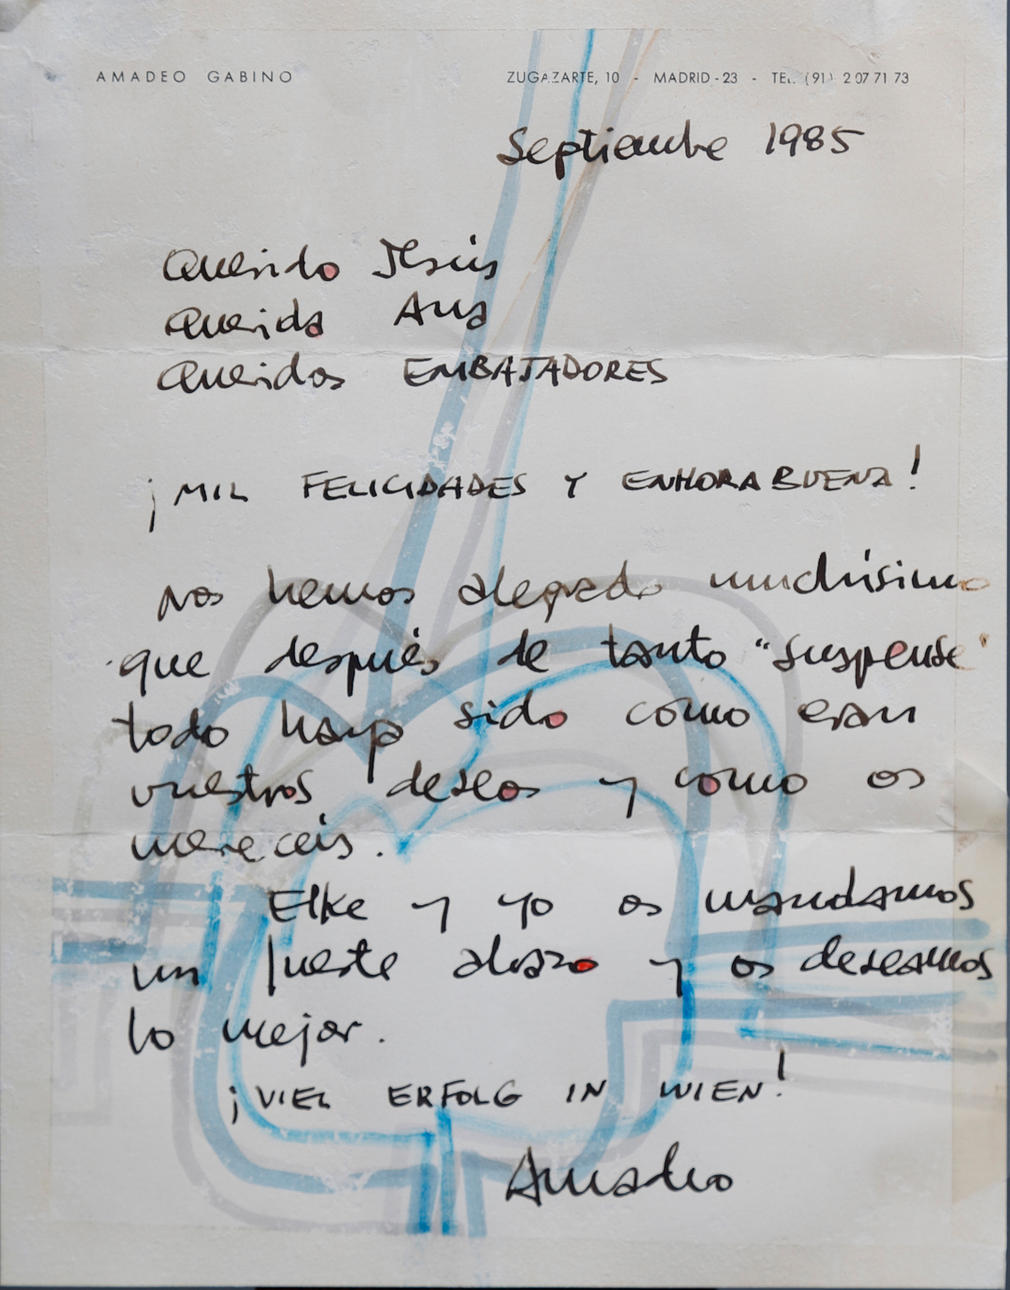 AMADEO GABINO
ZUGAZARTE, 10 - MADRID-23 - TEL. (91) 2 07 71 73
Septiembre 1985
Querido Jesús
Querida Ana
Queridos EMBAJADORES
¡MIL FELICIDADES Y ENHORABUENA!
Nos hemos alegrado muchísimo
que después de tanto "suspense"
todo haya sido como eran
vuestros deseos y como os
mereceis.
Elke y yo os mandamos
un fuerte abrazo y os deseamos
lo mejor.
¡VIEL ERFOLG IN WIEN!
Amadeo